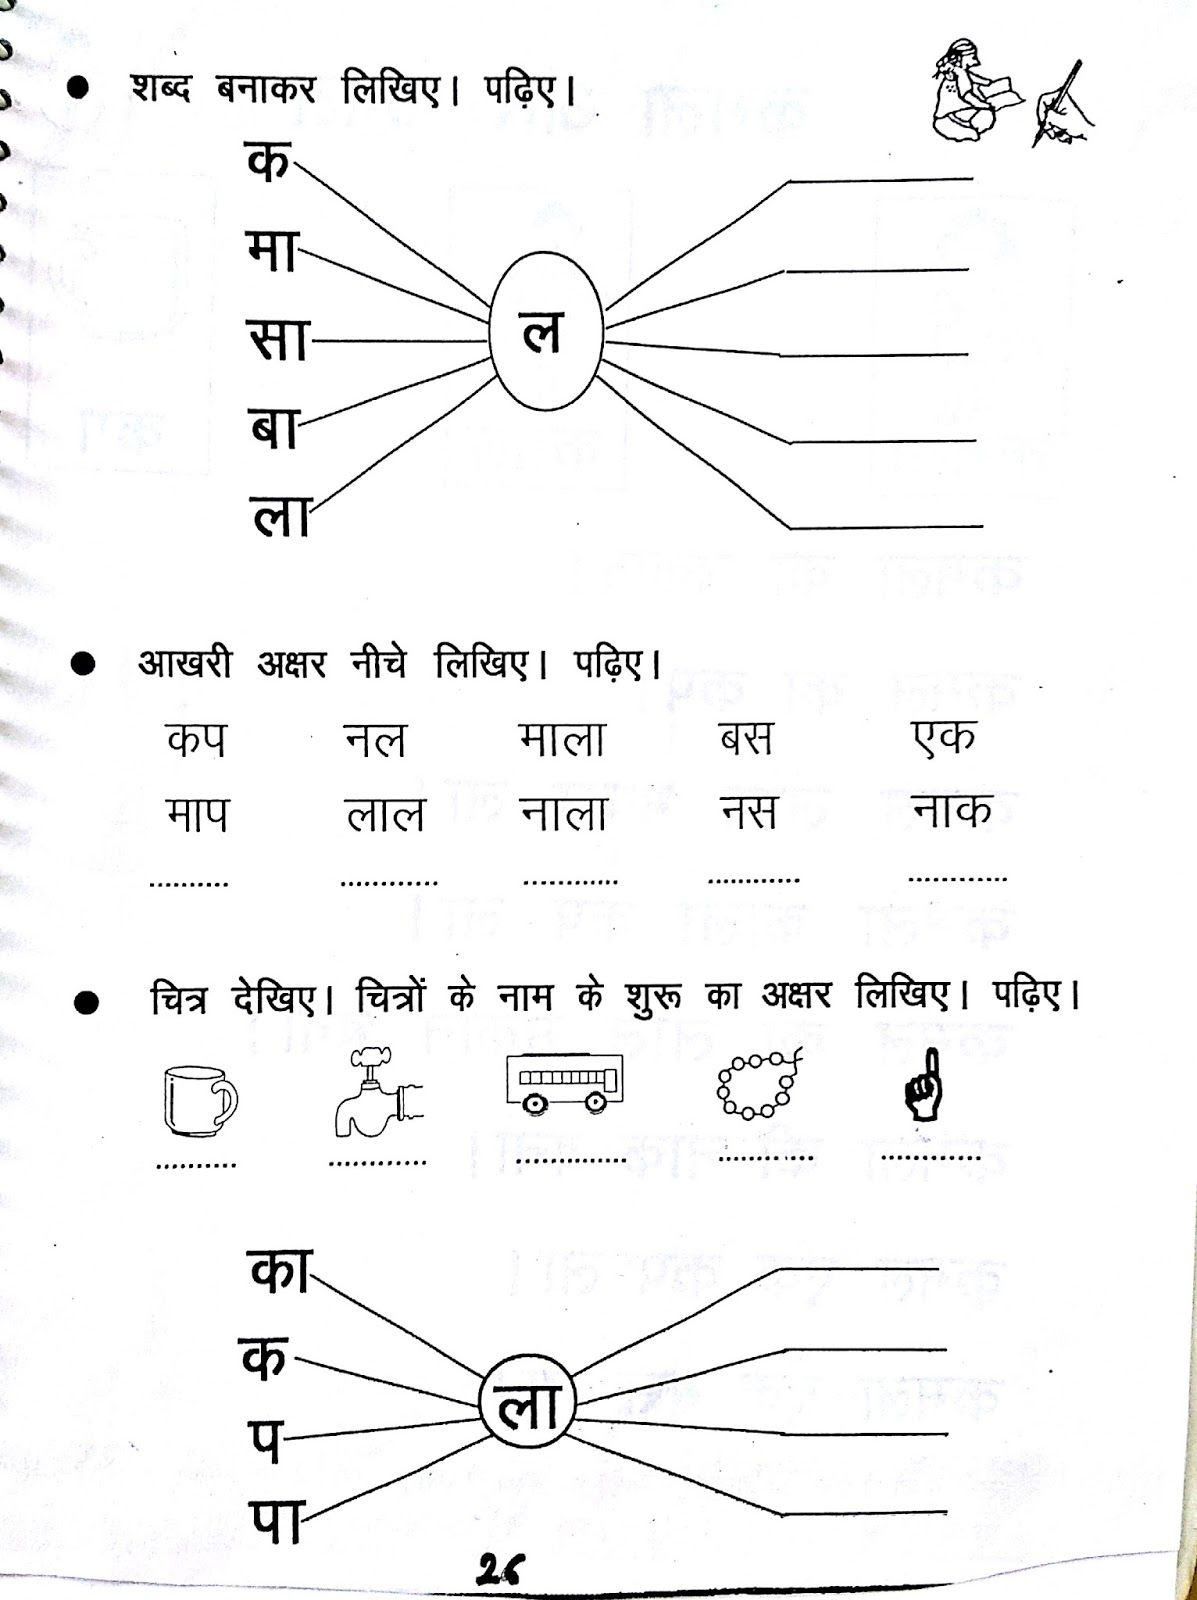 शब्द बनाकर लिखिए। पढ़िए।
क
मा
सा
बा
ला
ल
आखरी अक्षर नीचे लिखिए। पढ़िए।
कप नल माला बस एक
माप लाल नाला नस नाक
चित्र देखिए। चित्रों के नाम के शुरू का अक्षर लिखिए। पढ़िए।
का
क
प
पा
ला
26